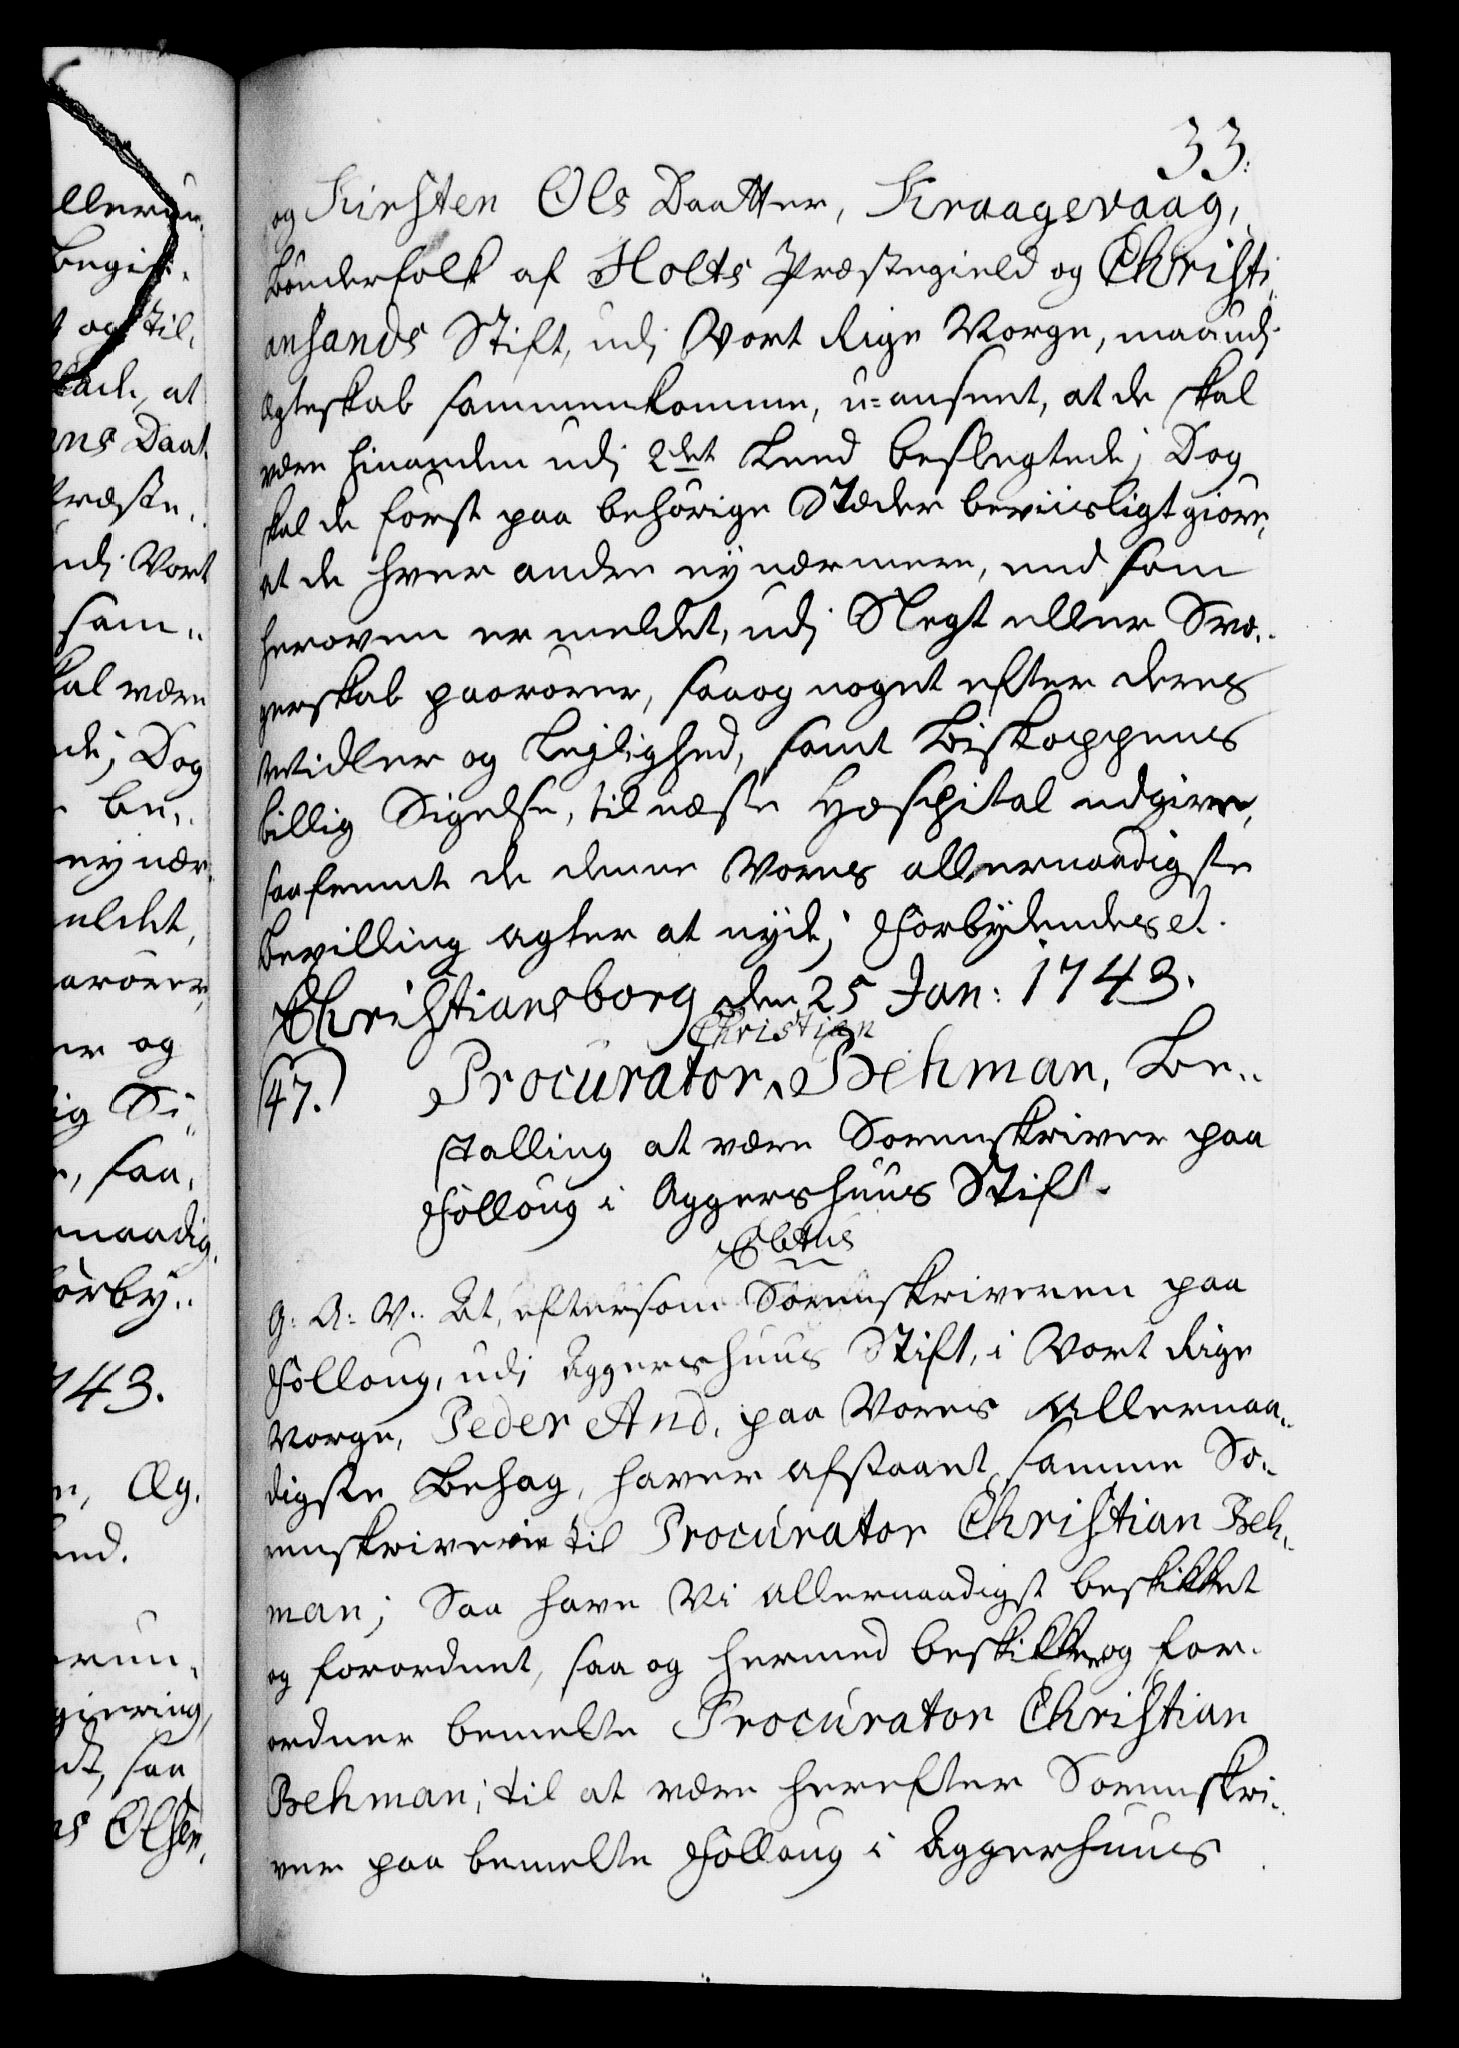 33.
og Kirsten Ols Daatter, Kraagevaag,
Bønderfolk af Holts Præstegield og Christi¬
ansands Stift, udi Vort Rige Norge, maa udi
Ægteskab sammenkomme, u-anseet, at de skal
være hinanden udi 2det Leed beslegtede; Dog
skal de først paa behørige Stæder beviisligt giøre,
at de hver andre ey nærmere, end som
heroven er meldet, udi Slegt eller Svo¬
gerskab paarører, saa og noget efter deres
Midler og Lejlighed, samt Biskoppens
billig Sigelse, til næste Hospital udgive,
saafremt de denne Vores allernaadigste
Bevilling agter at nyde; Forbydendes et.
Christiansborg den 25 Jan: 1743.
47.) Procurator Christian Behman, Be¬
stalling at være Sorenskriver paa
Folloug i Aggershuus Stift.
G: A: V: At, eftersom Sorenskriveren paa
Folloug, udi Aggershuus Stift, i Vort Rige
Norge, Peder And, paa Vores Allernaa¬
digste Behag, haver afstaaet samme So¬
renskriverie til Procurator Christian Beh¬
man; Saa have Vi allernaadigst beskikket
og forordnet, saa og hermed beskikker og for¬
ordner bemelte Procurator Christian
Behman; til at være herefter Sorenskri¬
ver paa bemelte Follaug i Aggerhuus